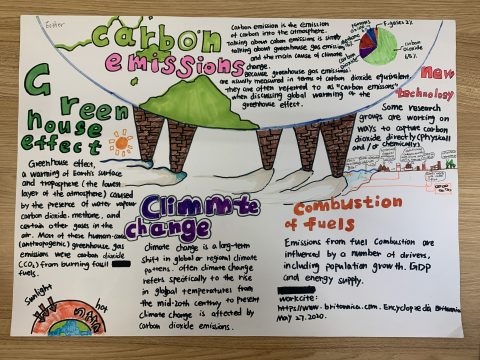 Ester
carbon
emissions
Carbon emission is the emission
of carbon into the atmosphere.
talking about carbon emissions is simply
talking about greenhouse gas emissions
and the main cause of climate
change.
Because greenhouse gas emissions
are usually measured in terms of carbon dioxide equivalent,
they are often referred to as "carbon emissions"
when discussing global warming or the
greenhouse effect.
F-gases 2%
carbon
dioxide
65%
new
technology
Some research
groups are working on
ways to capture carbon
dioxide directly (physically
and / or chemically)
Green
house
effect
Greenhouse effect,
a warming of Earth's surface
and troposphere (the lowest
layer of the atmosphere) caused
by the presence of water vapour
carbon dioxide, methane, and
certain other gases in the
air. Most of these human-caused
(anthropogenic) greenhouse gas
emissions were carbon dioxide
(CO₂) from burning fossil
fuels.
Climate
change
Climate change is a long-term
shift in global or regional climate
patterns. Often climate change
refers specifically to the rise
in global temperatures from
the mid-20th century to present
climate change is affected by
carbon dioxide emissions.
Combustion
of fuels
Emissions from fuel combustion are
influenced by a number of drivers,
including population growth, GDP
and energy supply.
workcite:
https://www.britannica.com. Encyclopædia Britannica
May 27, 2020.
Sunlight
hot